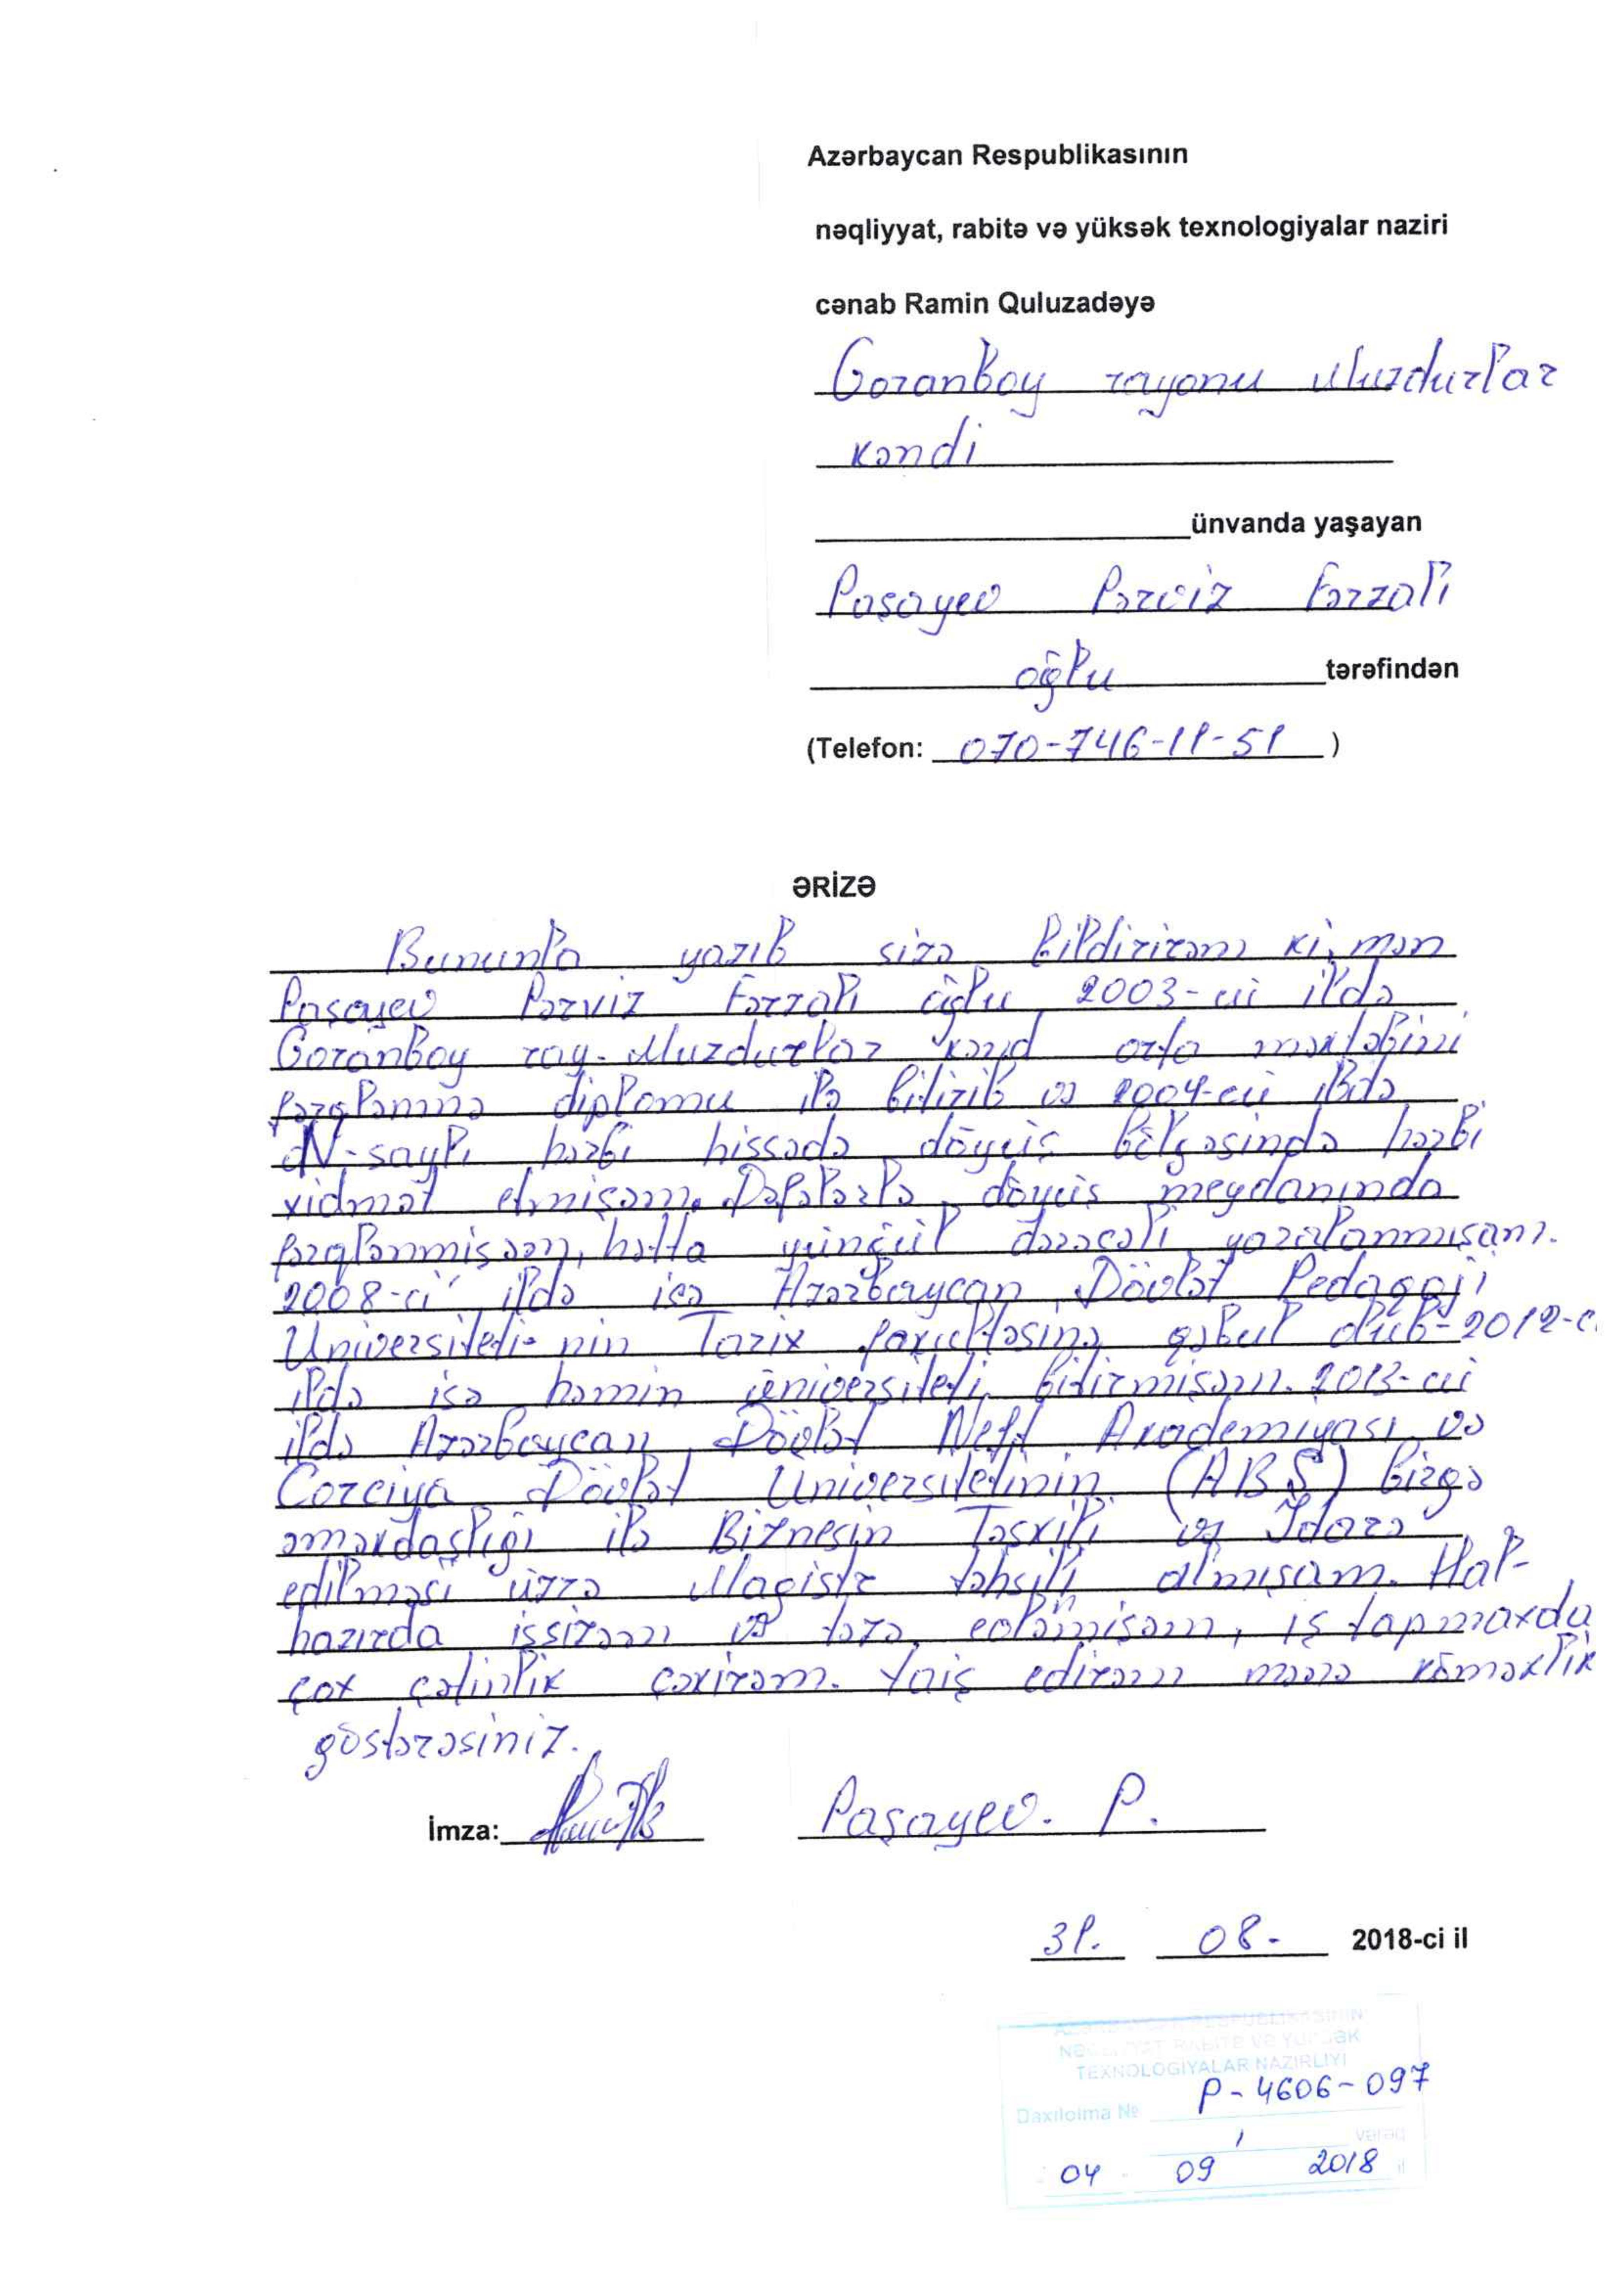 Azərbaycan Respublikasının
nəqliyyat, rabitə və yüksək texnologiyalar naziri
cənab Ramin Quluzadəyə
Goranboy rayonu Muzdurlar
kəndi
ünvanda yaşayan
Paşayev Pərviz Fərzalı
oğlu tərəfindən
(Telefon: 070-746-11-51 )
ƏRİZƏ
Bununla yazıb sizə bildirirəm ki, mən
Paşayev Pərviz Fərzalı oğlu 2003-cü ildə
Goranboy ray. Muzdurlar kənd orta məktəbini
fərqlənmə diplomu ilə bitirib və 2004-cü ildə
N-saylı hərbi hissədə döyüş bölgəsində hərbi
xidmət etmişəm. Dəfələrlə döyüş meydanında
fərqlənmişəm, hətta yüngül dərəcəli yaralanmışam.
2008-ci ildə isə Azərbaycan Dövlət Pedaqoji
Universiteti-nin Tarix fakültəsinə qəbul olub-2012-c
ildə isə həmin üniversiteti bitirmişəm. 2013-cü
ildə Azərbaycan Dövlət Neft Akademiyası və
Corciya Dövlət Universitetinin (ABŞ) birgə
əməkdaşlığı ilə Biznesin Təşkili və İdarə
edilməsi üzrə Magistr təhsili almışam. Hal-
hazırda işsizəm və təzə evlənmişəm, iş tapmaxda
çox çətinlik çəkirəm. Xaiş edirəm mənə köməklik
göstərəsiniz.
İmza: Paşayev. P.
31. 08. 2018-ci il
AZƏRBAYCAN RESPUBLİKASININ
NƏQLİYYAT, RABİTƏ VƏ YÜKSƏK
TEXNOLOGİYALAR NAZİRLİYİ
Daxilolma № P-4606-097
1 vərəq
04 09 2018 il